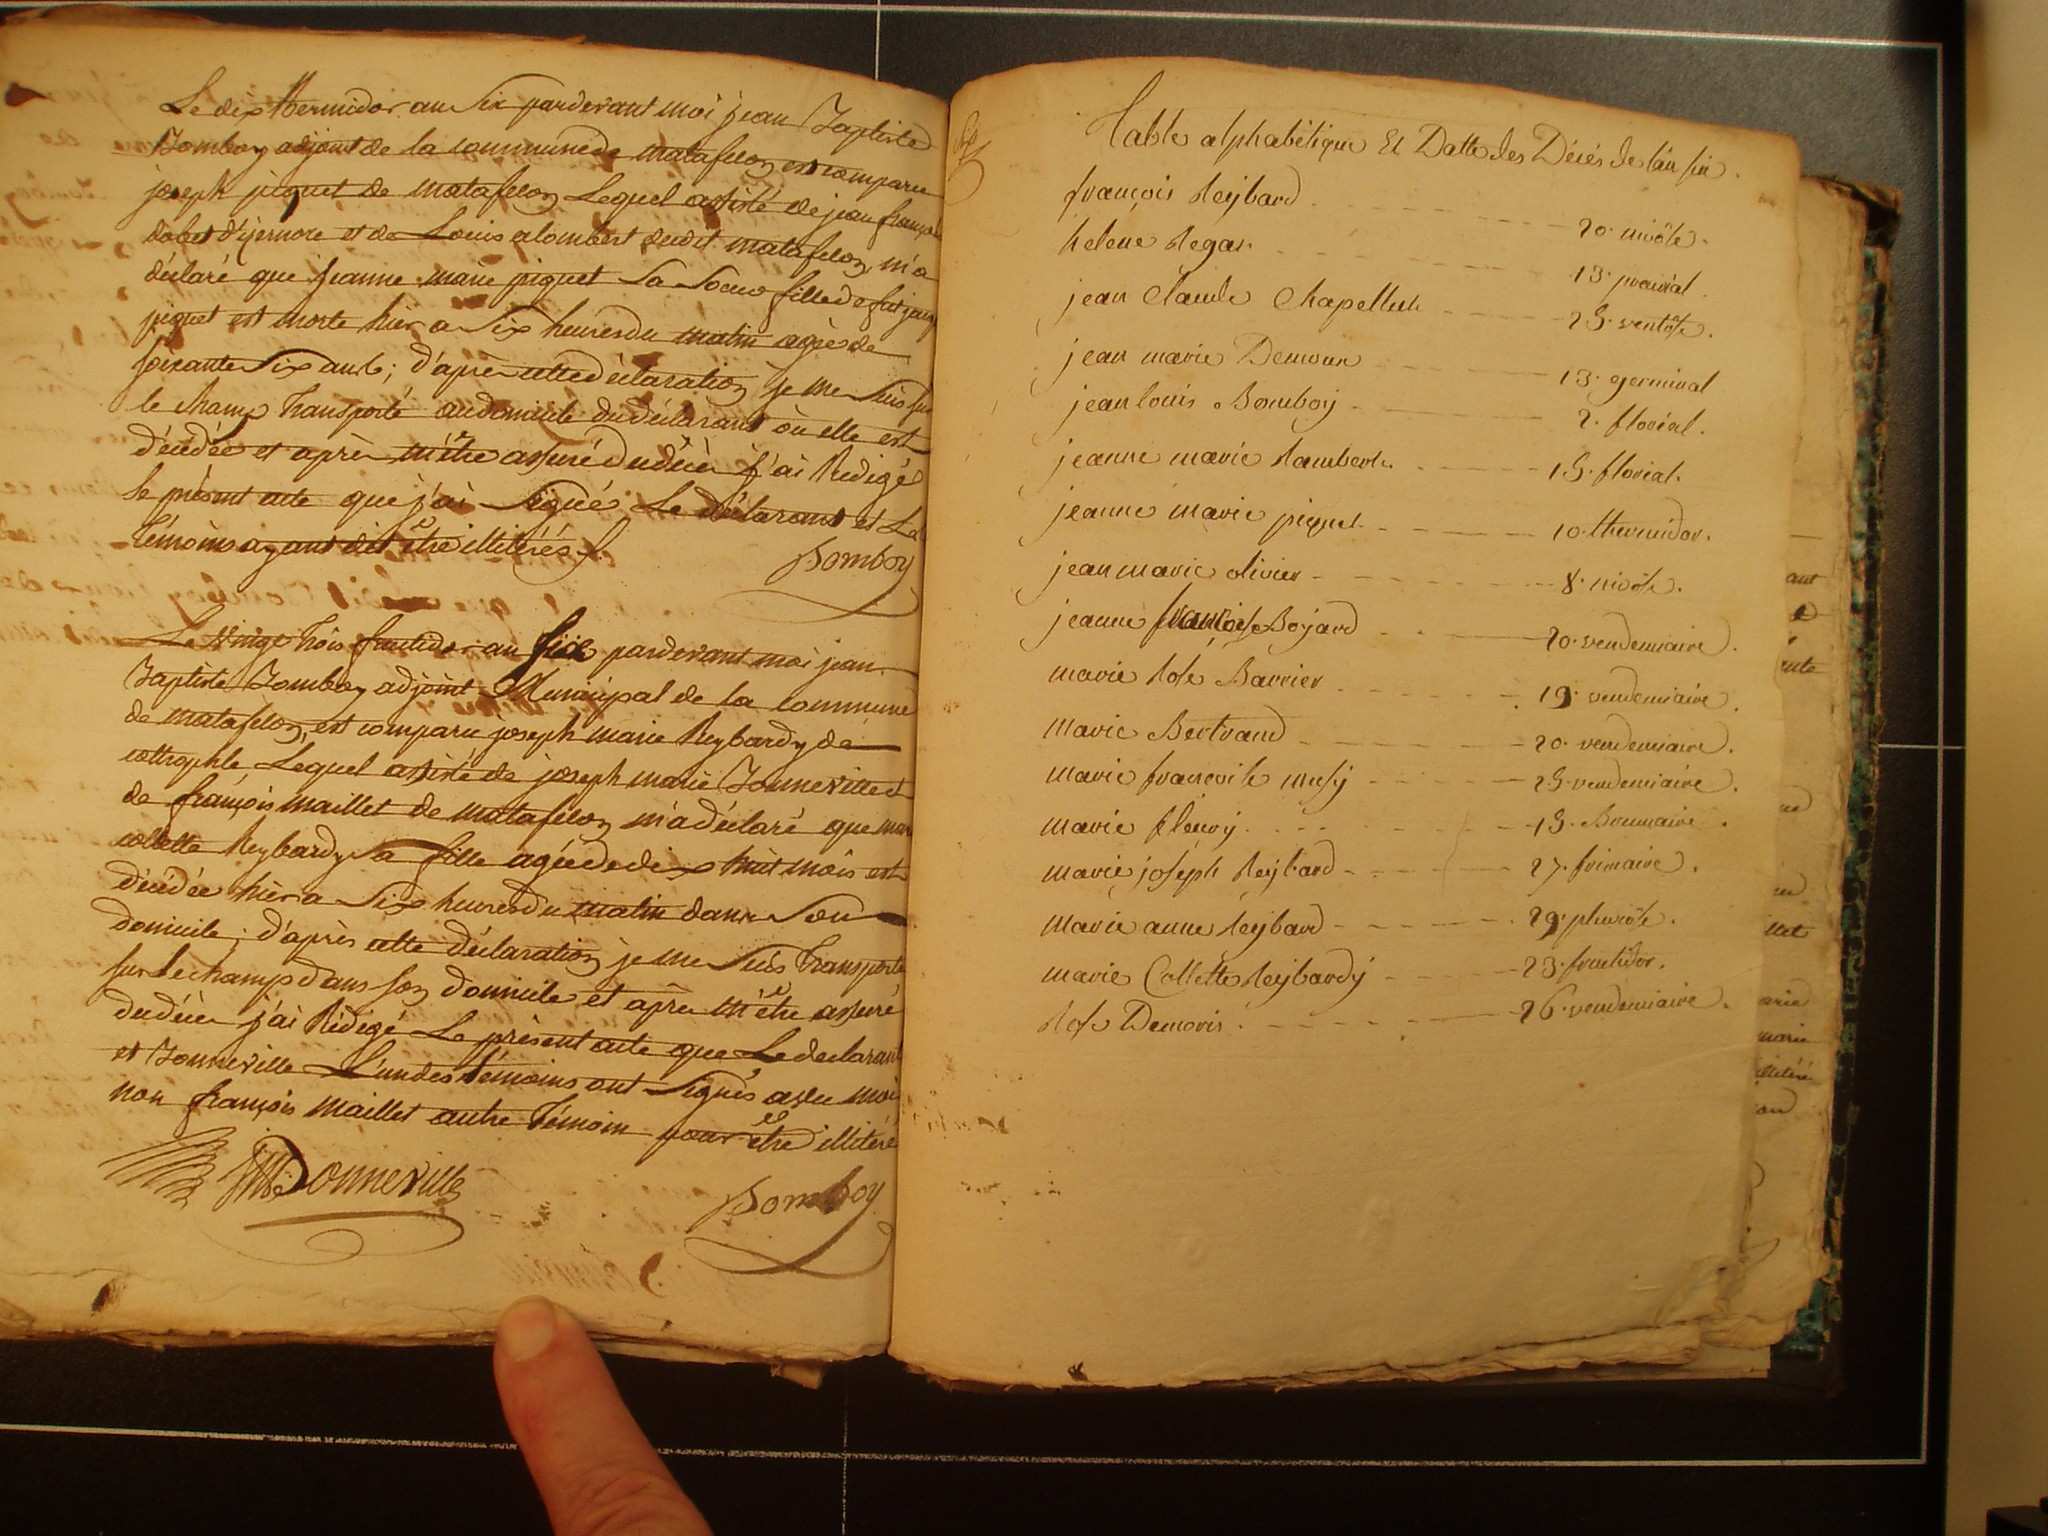 Le dix thermidor an Six pardevant moi jean Baptiste
Bomboy adjoint de la commune de matafelon est comparu
joseph piquet de matafelon Lequel assisté de jean françois
d'izernore et de Louis alombert dudit matafelon, m'a
déclaré que jeanne marie piquet Sa Soeur fille de fut jean
piquet est morte hier a Six heures du matin agée de
soixante Six ans; d'après cette déclaration je me Suis sur
le champ Transporté au domicile du déclarant où elle est
décédée et après m'être assuré du décès j'ai Rédigé
le présent acte que j'ai Signé Le déclarant et Les
Témoins ayant dit être illitérés.
Bomboy
Le vingt trois fructidor an Six pardevant moi jean
Baptiste Bomboy adjoint Municipal de la commune
de matafelon, est comparu joseph marie Reybardy de
Lequel assisté de joseph marie Bonneville et
de françois maillet de matafelon m'a déclaré que marie
collette Reybardy Sa fille agée de dix huit mois est
décédée hier a Six heures du matin dans Son
domicile; d'après cette déclaration je me Suis Transporté
sur le champ dans son domicile et après m'être assuré
du décès j'ai Rédigé Le présent acte que Le declarant
et Bonneville L'un des témoins ont Signés avec moi
non françois maillet autre Témoin pour être illitéré
JMBonneville
Bomboy
Table alphabétique Et Datte des Décés de l'an six.
françois Reybard 20. nivôse.
helene Regar. 13. prairial.
jean Claude Chapellut 25. ventôse.
jean marie Demoux 13. germinal
jean louis Bomboy 2. floréal.
jeanne marie Rambert 15. floréal.
jeanne marie piquet 10. thermidor.
jean marie olivier 8. nivôse.
jeanne françoise Bojard 20. vendemiaire.
marie Rose Barrier 19. vendemiaire.
marie Bertrand 20. vendemiaire.
marie françoise musy 25. vendemiaire.
marie fleury 15. Brumaire.
marie joseph Reybard 27. frimaire.
marie anne Reybard 29. pluviôse.
marie Collette Reybardy 23. fructidor.
Rose Demoris. 26. vendemiaire.